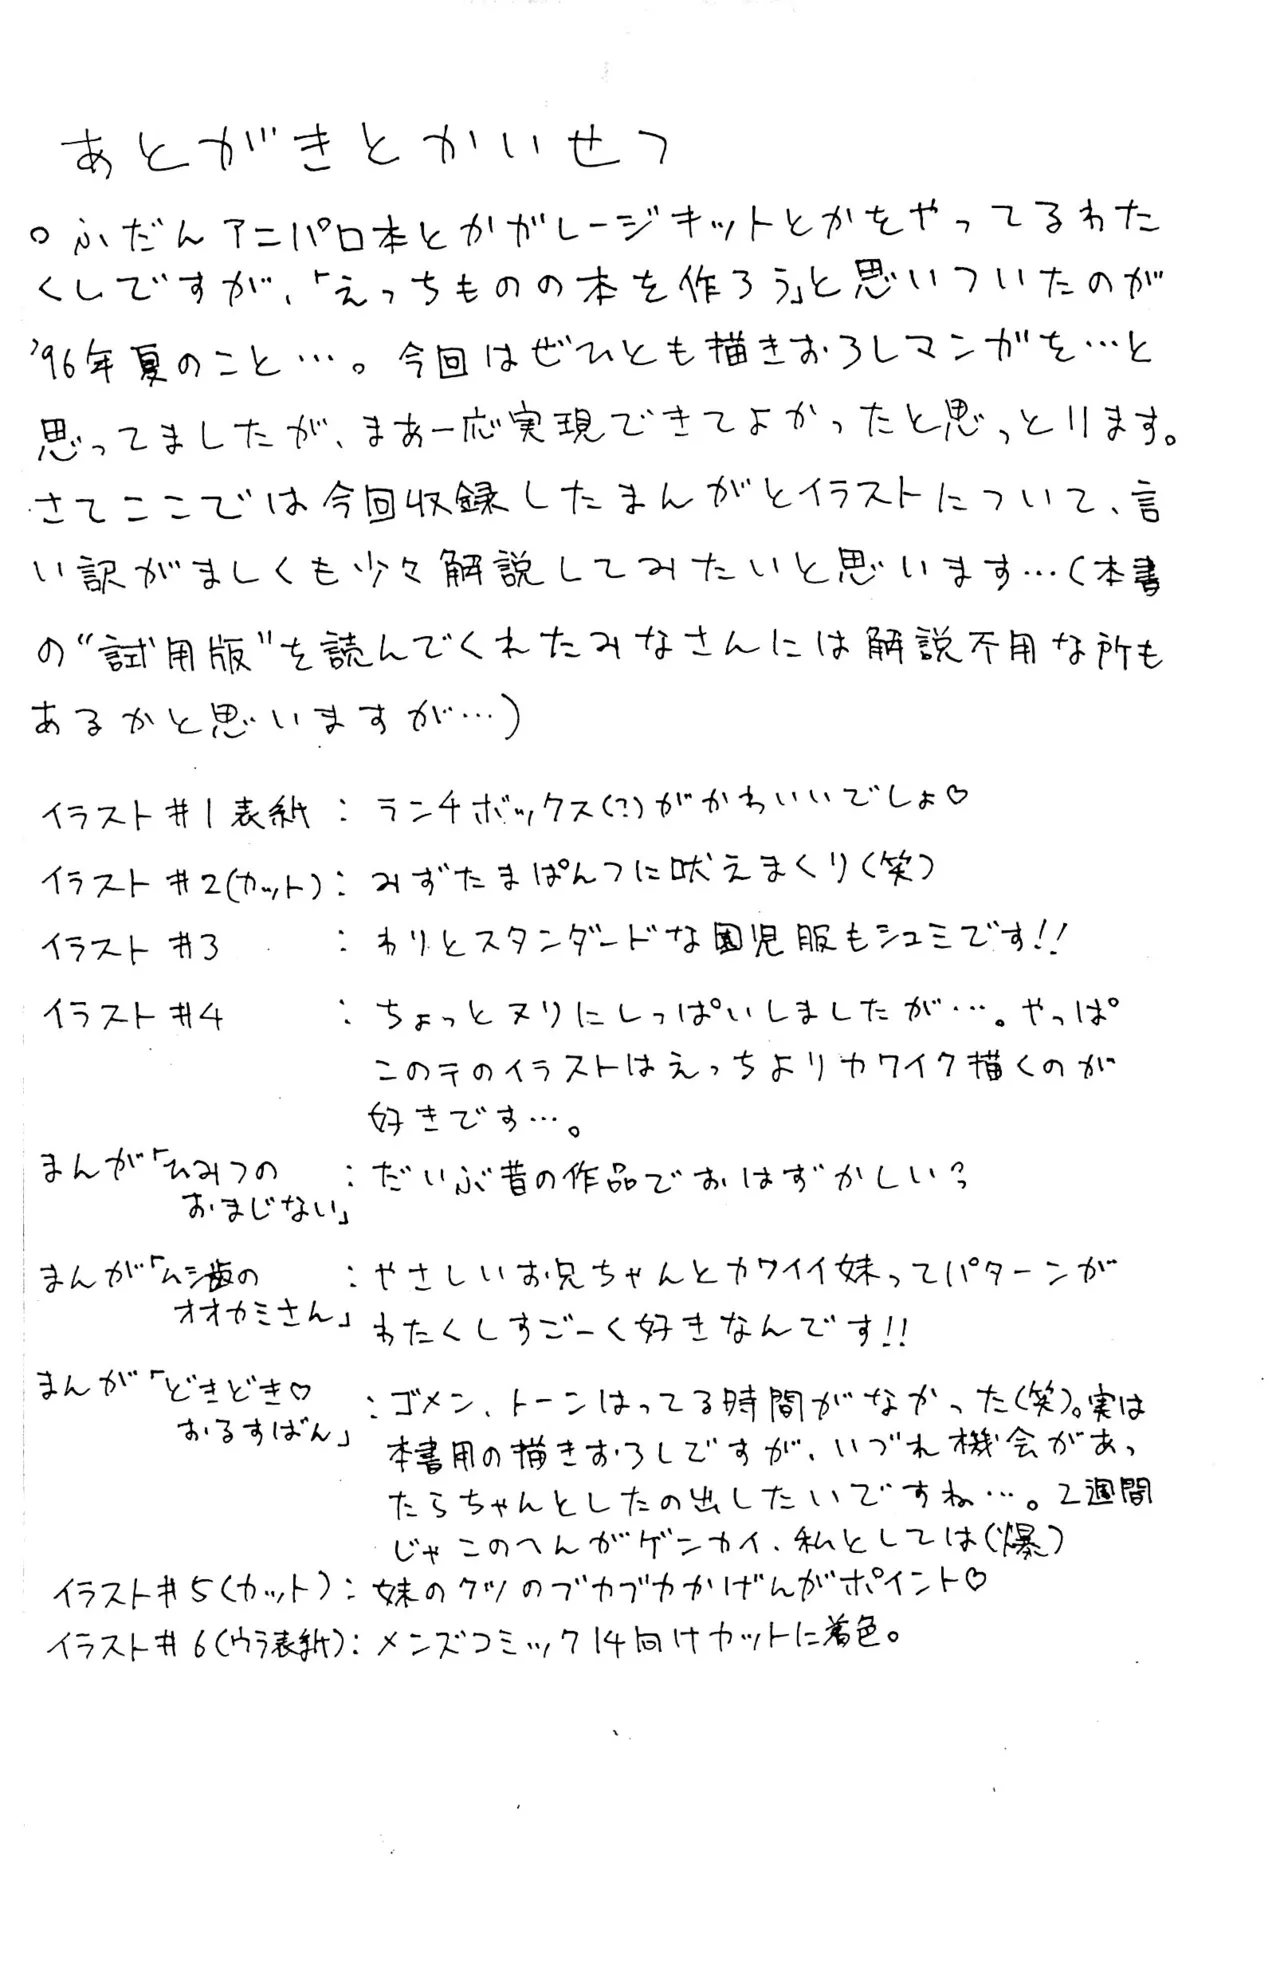 あとがきとかいせつ
○ふだんアニパロ本とかガレージキットとかをやってるわた
くしですが、「えっちものの本を作ろう」と思いついたのが
'96年夏のこと…。今回はぜひとも描きおろしマンガを…と
思ってましたが、まあ一応実現できてよかったと思っとります。
さてここでは今回収録したまんがとイラストについて、言
い訳がましくも少々解説してみたいと思います…(本書
の“試用版”を読んでくれたみなさんには解説不用な所も
あるかと思いますが…)
イラスト#1表紙:ランチボックス(?)がかわいいでしょ♡
イラスト#2(カット):みずたまぱんつに吠えまくり(笑)
イラスト#3:わりとスタンダードな園児服もシュミです!!
イラスト#4:ちょっとヌリにしっぱいしましたが…。やっぱ
このテのイラストはえっちよりカワイク描くのが
好きです…。
まんが「ひみつの
おまじない」
:だいぶ昔の作品でおはずかしい?
まんが「ムシ歯の
オオカミさん」
:やさしいお兄ちゃんとカワイイ妹ってパターンが
わたくしすごーく好きなんです!!
まんが「どきどき♡
おるすばん」
:ゴメン、トーンはってる時間がなかった(笑)。実は
本書用の描きおろしですが、いづれ機会があっ
たらちゃんとしたの出したいですね…。2週間
じゃこのへんがゲンカイ、私としては(爆)
イラスト#5(カット):妹のクツのブカブカかげんがポイント♡
イラスト#6(ウラ表紙):メンズコミック14向けカットに着色。